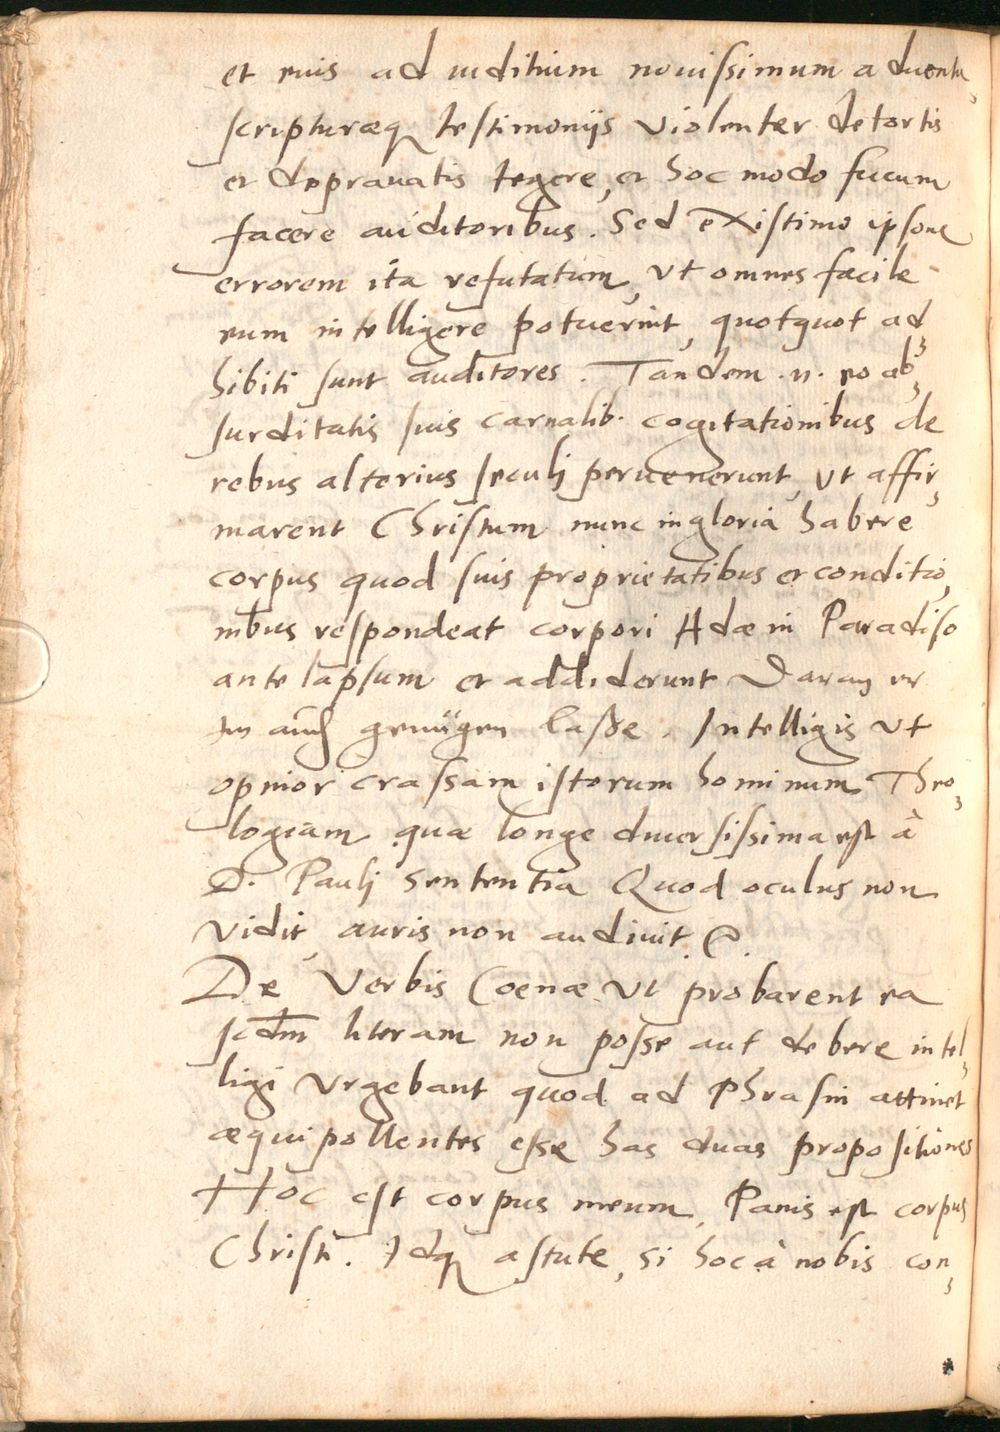 et eius ad iuditium nouissimum aduentu,
scripturæq testimonijs violenter detortis
et deprauatis tegere, et hoc modo fucum
facere auditoribus. Sed existimo ipsorum
errorem ita refutatum, vt omnes facile
eum intelligere potuerint, quotquot ad,
hibiti sunt auditores. Tandem .n. eo ab,
surditatis suis carnalib. cogitationibus de
rebus alterius seculj peruenerunt, vt affir,
marent Christum nunc in gloria habere
corpus quod suis proprietatibus et conditio,
nibus respondeat corpori Adæ in Paradiso
ante lapsum et addiderunt Daran er
im auch genuͤgen lasse. Intelligis vt
opinor crassam istorum hominum Theo,
logiam quæ longe diuersissima est à
D. Paulj sententia Quod oculus non
vidit, auris non audiuit &.
De Verbis Coenæ vt probarent ea
scdm literam non posse aut debere intel,
ligi vrgebant quod ad Phrasin attinet
æquipollentes esse has duas propositiones
Hoc est corpus meum, Panis est corpus
Christi. Idq astute, si hoc à nobis con,